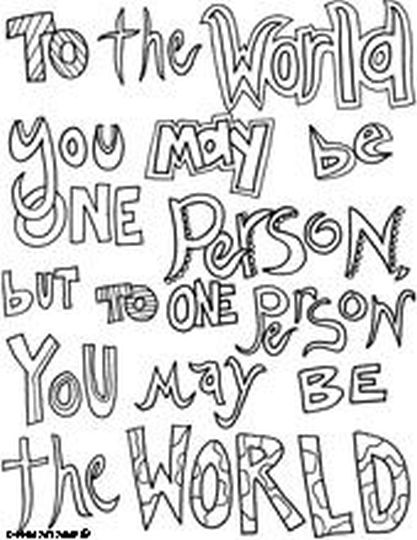 To the World
you may be
ONE Person,
but TO ONE Person
You May BE
the WORLD